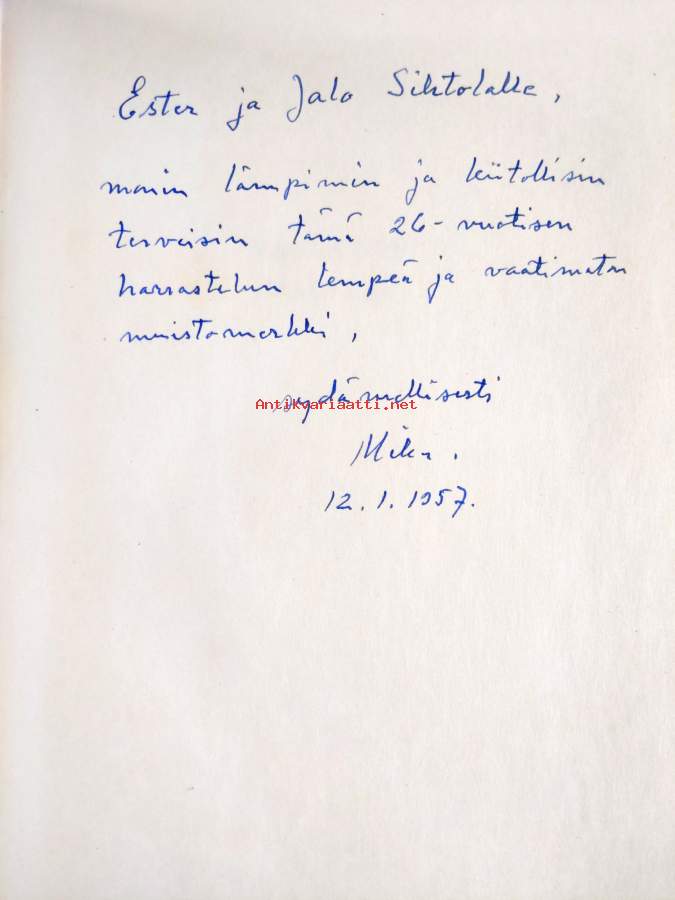 Ester ja Jalo Sihtolalle,
monin lämpimin ja kiitollisin
terveisin tämä 26-vuotisen
harrastelun lempeä ja vaatimaton
muistomerkki,
sydämellisesti
Antikvariaatti.net
Mika.
12.1.1957.